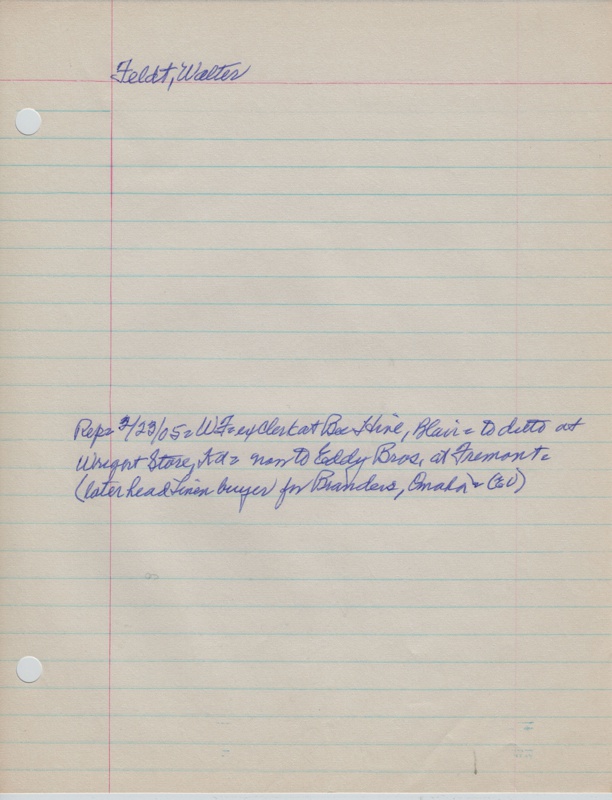 Feldt, Walter
Rep= 2/23/05= WF= ex Clerk at Bee Hive, Blair= to ditto at
Wright Store, Kd= now to Eddy Bros, at Fremont=
(later head Linen buyer for Brandeis, Omaha=